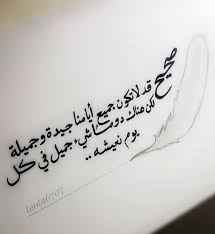 صحيح
قد لا تكون جميع أيامنا جيدة وجميلة
لكن هناك دوما شيء جميل في كل
يوم نعيشه ..
toota6707